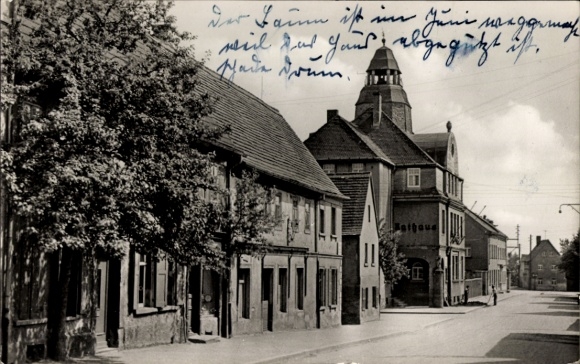 Der Baum ist im Juni weggemacht
weil das Haus abgeputzt ist.
schade drum.
Rathaus